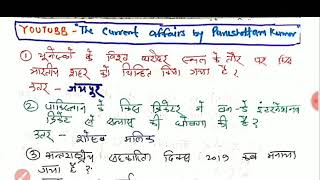 YOUTUBE - "The Current affairs by Purushottam Kumar
① यूनेस्को के विश्व धरोहर स्थल के तौर पर किस
भारतीय शहर को चिन्हित किया गया है?
उत्तर - जयपुर
② पाकिस्तान के किस क्रिकेटर ने वन-डे इंटरनेशनल
क्रिकेट से सन्यास की घोषणा की है?
उत्तर - शोएब मलिक
③ अन्तराष्ट्रीय सहकारिता दिवस 2019 कब मनाया
गया है?